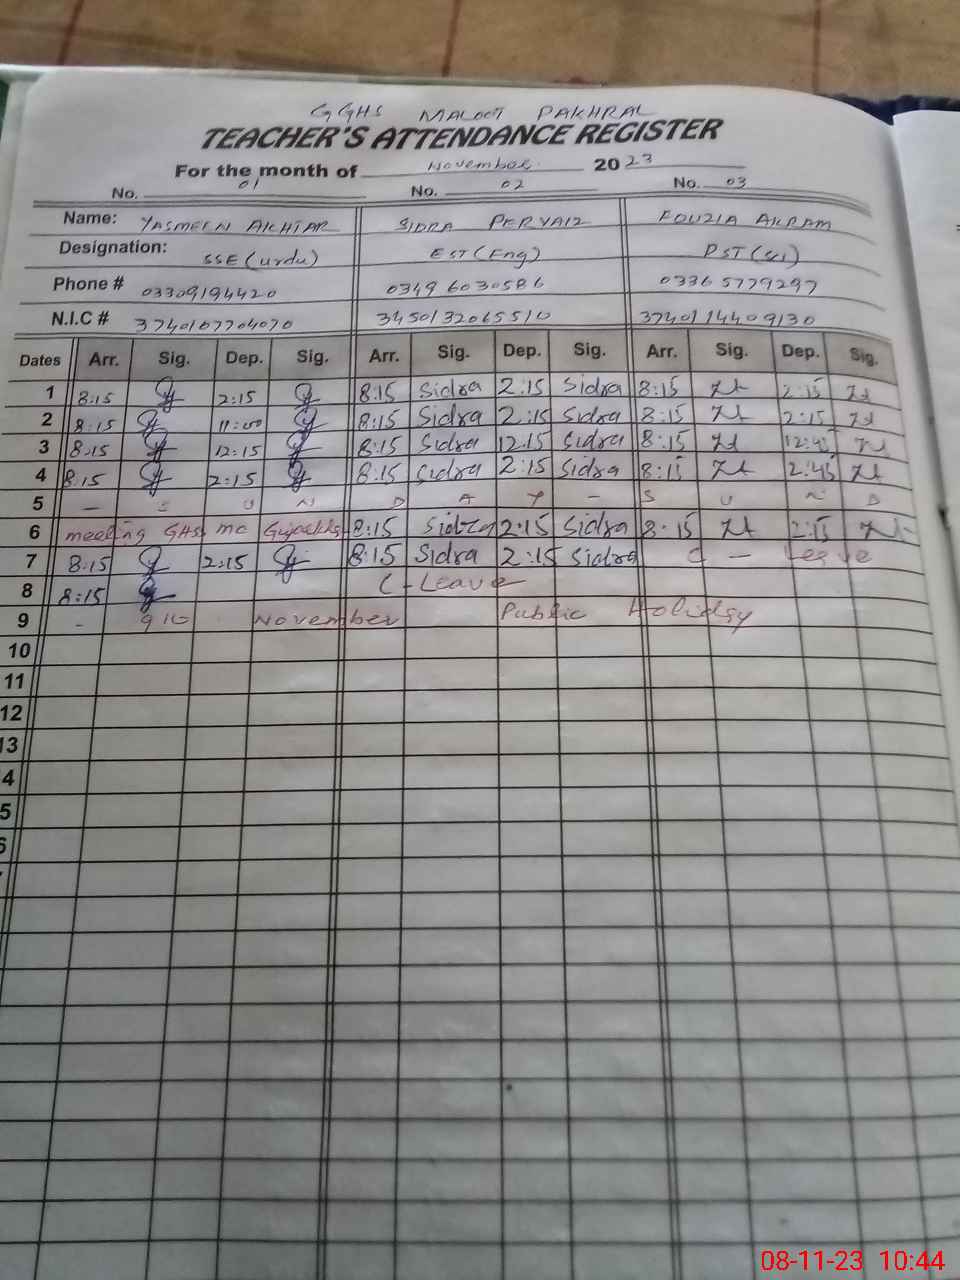 GGHS MALOOT PAKHRAL
TEACHER'S ATTENDANCE REGISTER
For the month of November 2023
No. 01 No. 02 No. 03
Name: YASMEEN AKHTAR SIDRA PERVAIZ FOUZIA AKRAM
Designation: SSE (urdu) EST (Eng) PST (sci)
Phone # 03309194420 0349 6030586 03365779297
N.I.C # 3740107704070 3450132065510 3740114409130
Dates Arr. Sig. Dep. Sig. Arr. Sig. Dep. Sig. Arr. Sig. Dep. Sig.
1 8:15 2:15 8:15 Sidra 2:15 Sidra 8:15 2:15
2 8:15 11:00 8:15 Sidra 2:15 Sidra 8:15 2:15
3 8:15 12:15 8:15 Sidra 12:15 Sidra 8:15 12:45
4 8:15 2:15 8:15 Sidra 2:15 Sidra 8:15 2:45
5 — S U N D A Y — S U N D
6 meeting GHS mc 8:15 Sidra 2:15 Sidra 8:15 2:15
7 8:15 2:15 8:15 Sidra 2:15 Sidra C — Leave
8 8:15 C-Leave
9 - 9 10 November Public Holidsy
10
11
12
13
4
5
6
08-11-23 10:44